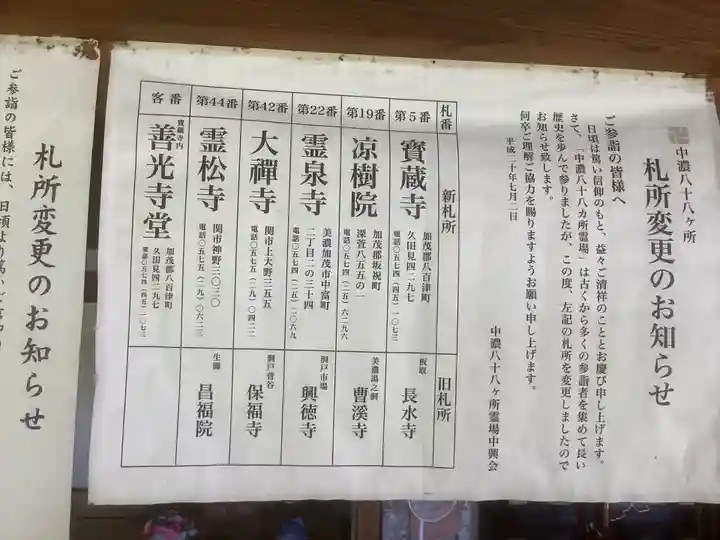 中濃八十八ヶ所
札所変更のお知らせ
ご参詣の皆様へ
日頃は篤い信仰のもと、益々ご清祥のこととお慶び申し上げます。
さて、「中濃八十八カ所霊場」は古くから多くの参詣者を集めて長い
歴史を歩んで参りましたが、この度、左記の札所を変更しましたので
お知らせ致します。
何卒ご理解ご協力を賜りますようお願い申し上げます。
平成二十年七月二日
中濃八十八ヶ所霊場中興会
札番
新札所
旧札所
第5番
寳蔵寺
加茂郡八百津町
久田見四二九七
電話〇五七四(四五)一〇七三
板取
長水寺
第19番
凉樹院
加茂郡坂祝町
深萱八五五の一
電話〇五七四(二五)六二九六
美濃湯之洞
曹溪寺
第22番
霊泉寺
美濃加茂市中富町
二丁目二の三十四
電話〇五七四(二五)二〇六九
洞戸市場
興徳寺
第42番
大禪寺
関市上大野三五五
電話〇五七五(二九)〇四二二
洞戸菅谷
保福寺
第44番
霊松寺
関市神野三〇三〇
電話〇五七五(二九)〇六二三
生櫛
昌福院
客番
寳蔵寺内
善光寺堂
加茂郡八百津町
久田見四二九七
電話〇五七四(四五)一〇七三
札所変更のお知らせ
ご参詣の皆様には、日頃より